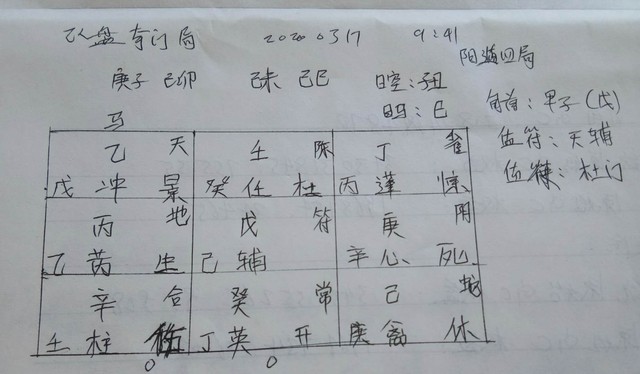 飞盘奇门局 20200317 9:41
阳遁四局
庚子 己卯 己未 己巳 日空:子丑
日马:巳
旬首:甲子(戊)
值符:天辅
值使:杜门
马
乙 天 壬 陈 丁 雀
戊 冲 景 癸 任 杜 丙 蓬 惊
丙 地 戊 符 庚 阴
乙 芮 生 己 辅 辛 心 死
辛 合 癸 常 己 蛇
壬 柱 伤 丁 英 开 庚 禽 休
○ ○